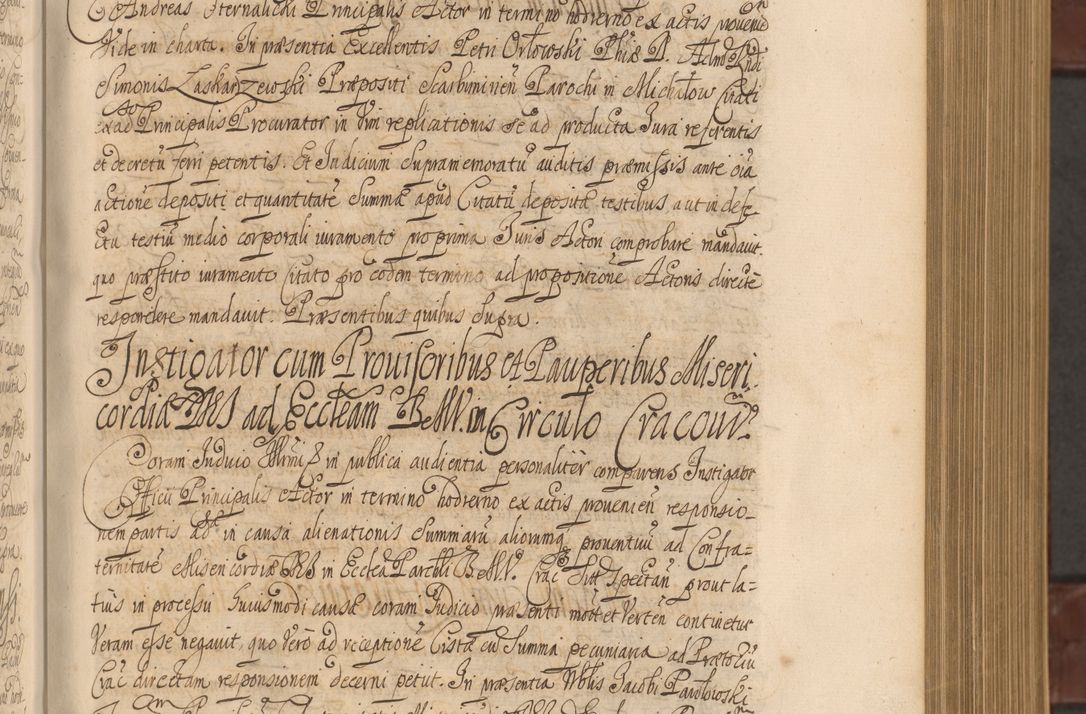 Andreas Sternalicki Principalis Actor in termino hodierno ex actis provenien
Vide in charta. In præsentia Excellentis Petri Orłowski Phiæ D. Admdi Rndi
Simonis Zaskarzewski Præpositi Scarbimirien̄ Parochi in Michałow Citati
ex adō Principalis Procurator in vim replicationis se ad producta Jura referentis
et decretū ferri petentis. Et Judicium Supramemoratū auditis præmissis ante oīa
actionē depositi et quantitatē Summæ apud Citatū depositæ testibus aut in defe-
ctu testiū medio corporali iuramento pro prima Junÿ Actori comprobare mandavit.
quo præstito iuramento Citato pro eodem termino ad propositionē Actoris directē
respondere mandavit. Præsentibus quibus supra.
Instigator cum Provisoribus et Pauperibus Miseri-
cordiæ DNI ad Eccleam B. M. V. in Circulo Cracoviēn.
Coram Judicio in publica audientia personaliter comparens Instigator
Officii Principalis Actor in termino hodierno ex actis provenien̄ responsio-
nem partis adæ in causa alienationis Summarū aliorumq proventuū ad Confra-
ternitatē Misericordiæ DNI in Ecclea B. M. V. Crac Sitt Spectan̄ prout la-
tius in processu huiusmodi causæ coram Judicio præsenti mot et verten̄ continetur
Veram esse negavit, quo verō ad receptionē Cistæ cū Summa pecuniaria ad Prætoriū
Crac directam responsionem decerni petiit. In præsentia Nblis Jacobi Pawłowski